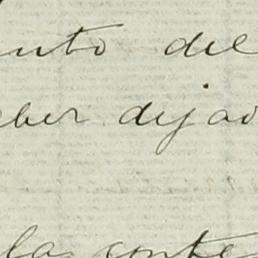 unto del
ber dejad
la conte